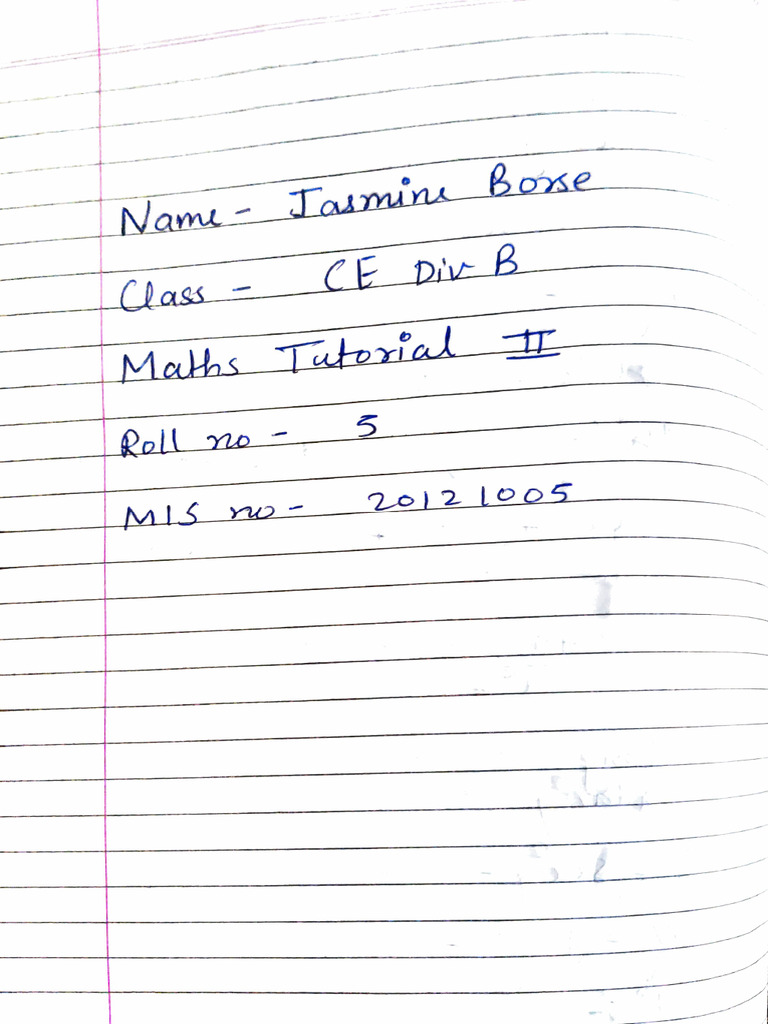 Name - Jasmine Borse
Class - CE Div B
Maths Tutorial II
Roll no - 5
MIS no - 20121005